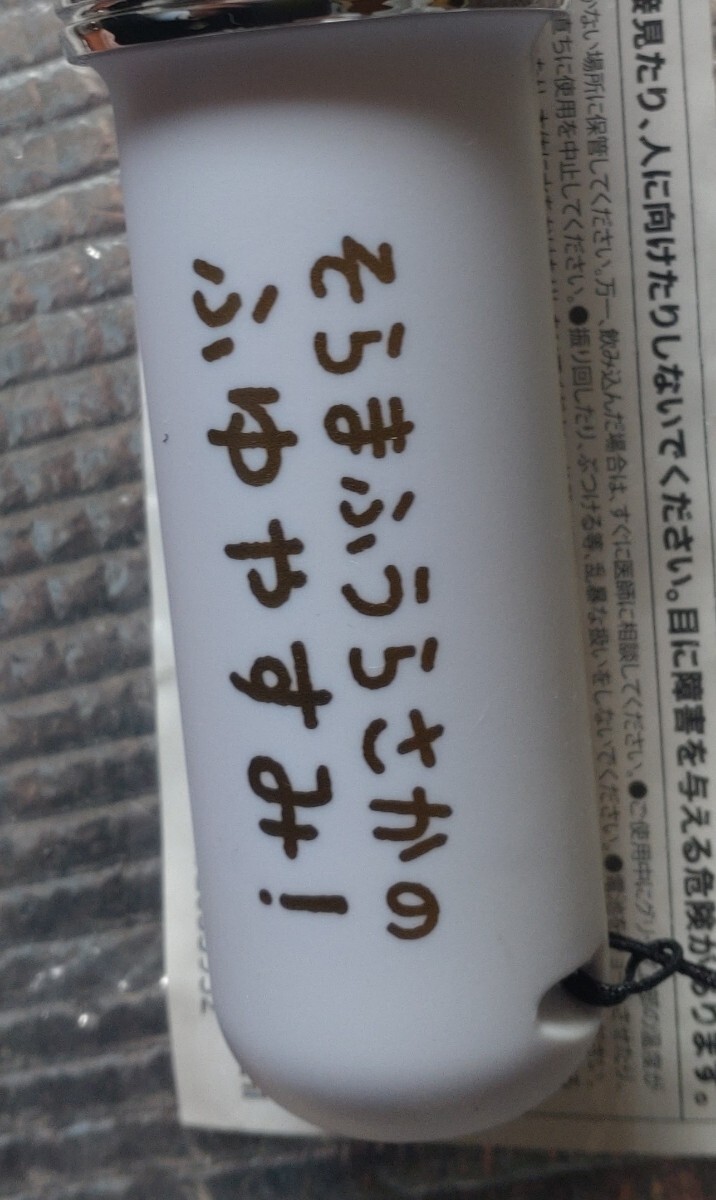 そらまふうらさかの
ふゆやすみ!
接見たり、人に向けたりしないでください。目に障害を与える危険があります。
かない場所に保管してください。万一、飲み込んだ場合は、すぐに医師に相談してください。●ご使用中にグリ
直ちに使用を中止してください。●振り回したり、ぶつける等、乱暴な扱いをしないでください。●